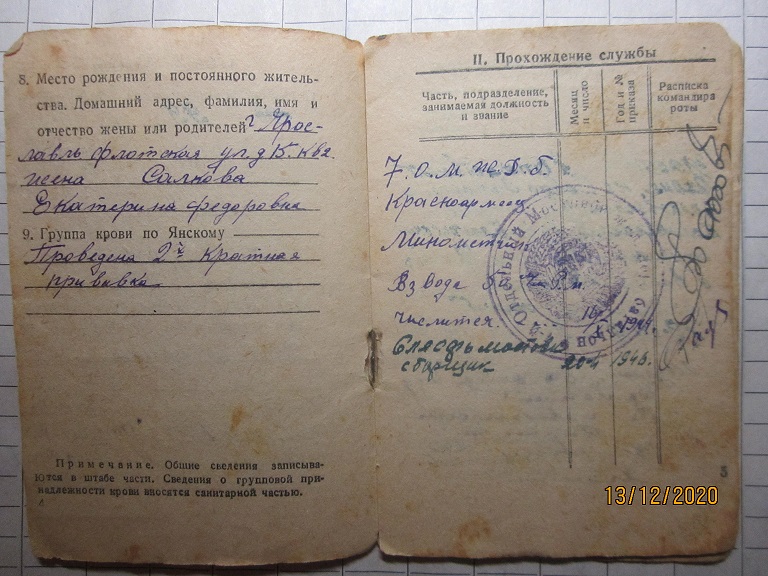 8. Место рождения и постоянного житель-
ства. Домашний адрес, фамилия, имя и
отчество жены или родителей г Ярос-
лавль флотская ул. д 15. кв 2.
Салкова
Екатерина федоровна
9. Группа крови по Янскому
Проведена 2х Кратная
прививка
Примечание. Общие сведения записыва-
ются в штабе части. Сведения о групповой при-
надлежности крови вносятся санитарной частью.
II. Прохождение службы
Часть, подразделение,
занимаемая должность
и звание
Месяц
и число
Год и №
приказа
Расписка
командира
роты
7 о. м. ж. д. б.
Красноармеец
Минометчик
Взводе
числится. 1944.
мостовик
сборщик 1946.
Отдельный
батальон
5
13/12/2020